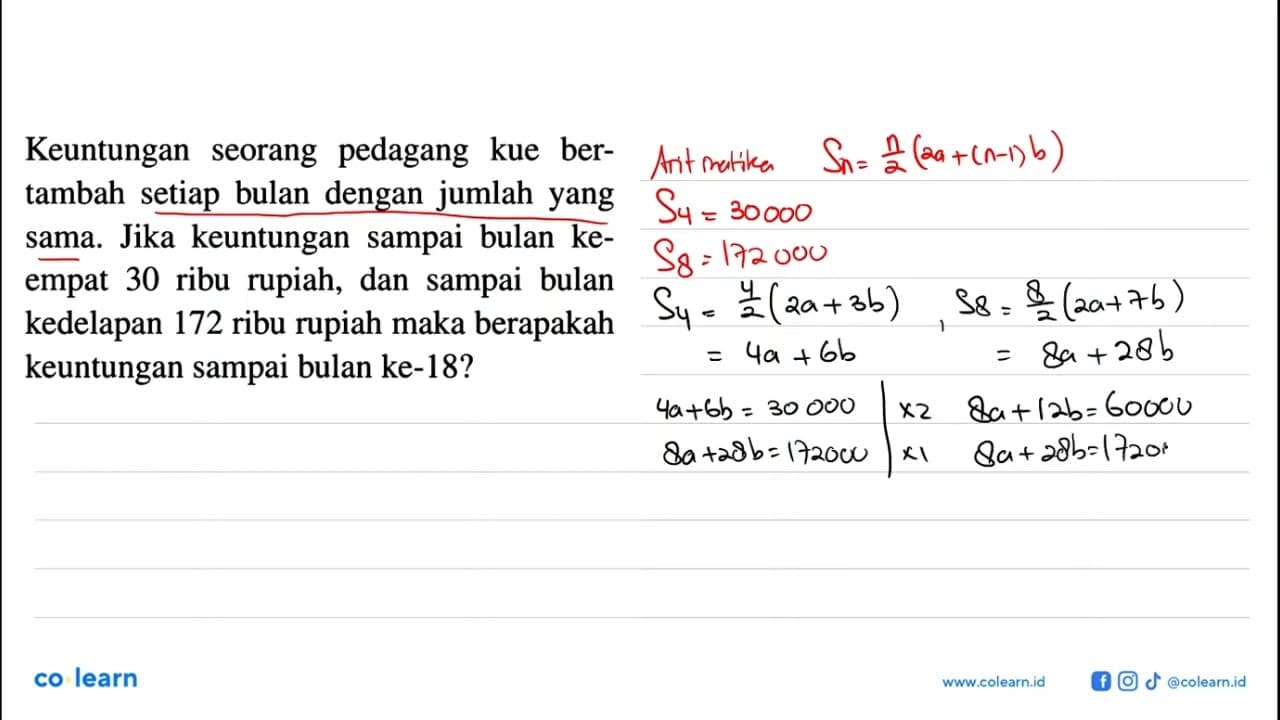 Keuntungan seorang pedagang kue ber-
tambah setiap bulan dengan jumlah yang
sama. Jika keuntungan sampai bulan ke-
empat 30 ribu rupiah, dan sampai bulan
kedelapan 172 ribu rupiah maka berapakah
keuntungan sampai bulan ke-18?
Aritmatika Sn = n/2 (2a + (n-1) b)
S4 = 30000
S8 = 172000
S4 = 4/2 (2a + 3b) , S8 = 8/2 (2a + 7b)
= 4a + 6b = 8a + 28b
4a + 6b = 30 000 | x2 8a + 12b = 60000
8a + 28b = 172000 | x1 8a + 28b = 1720
co learn
www.colearn.id @colearn.id